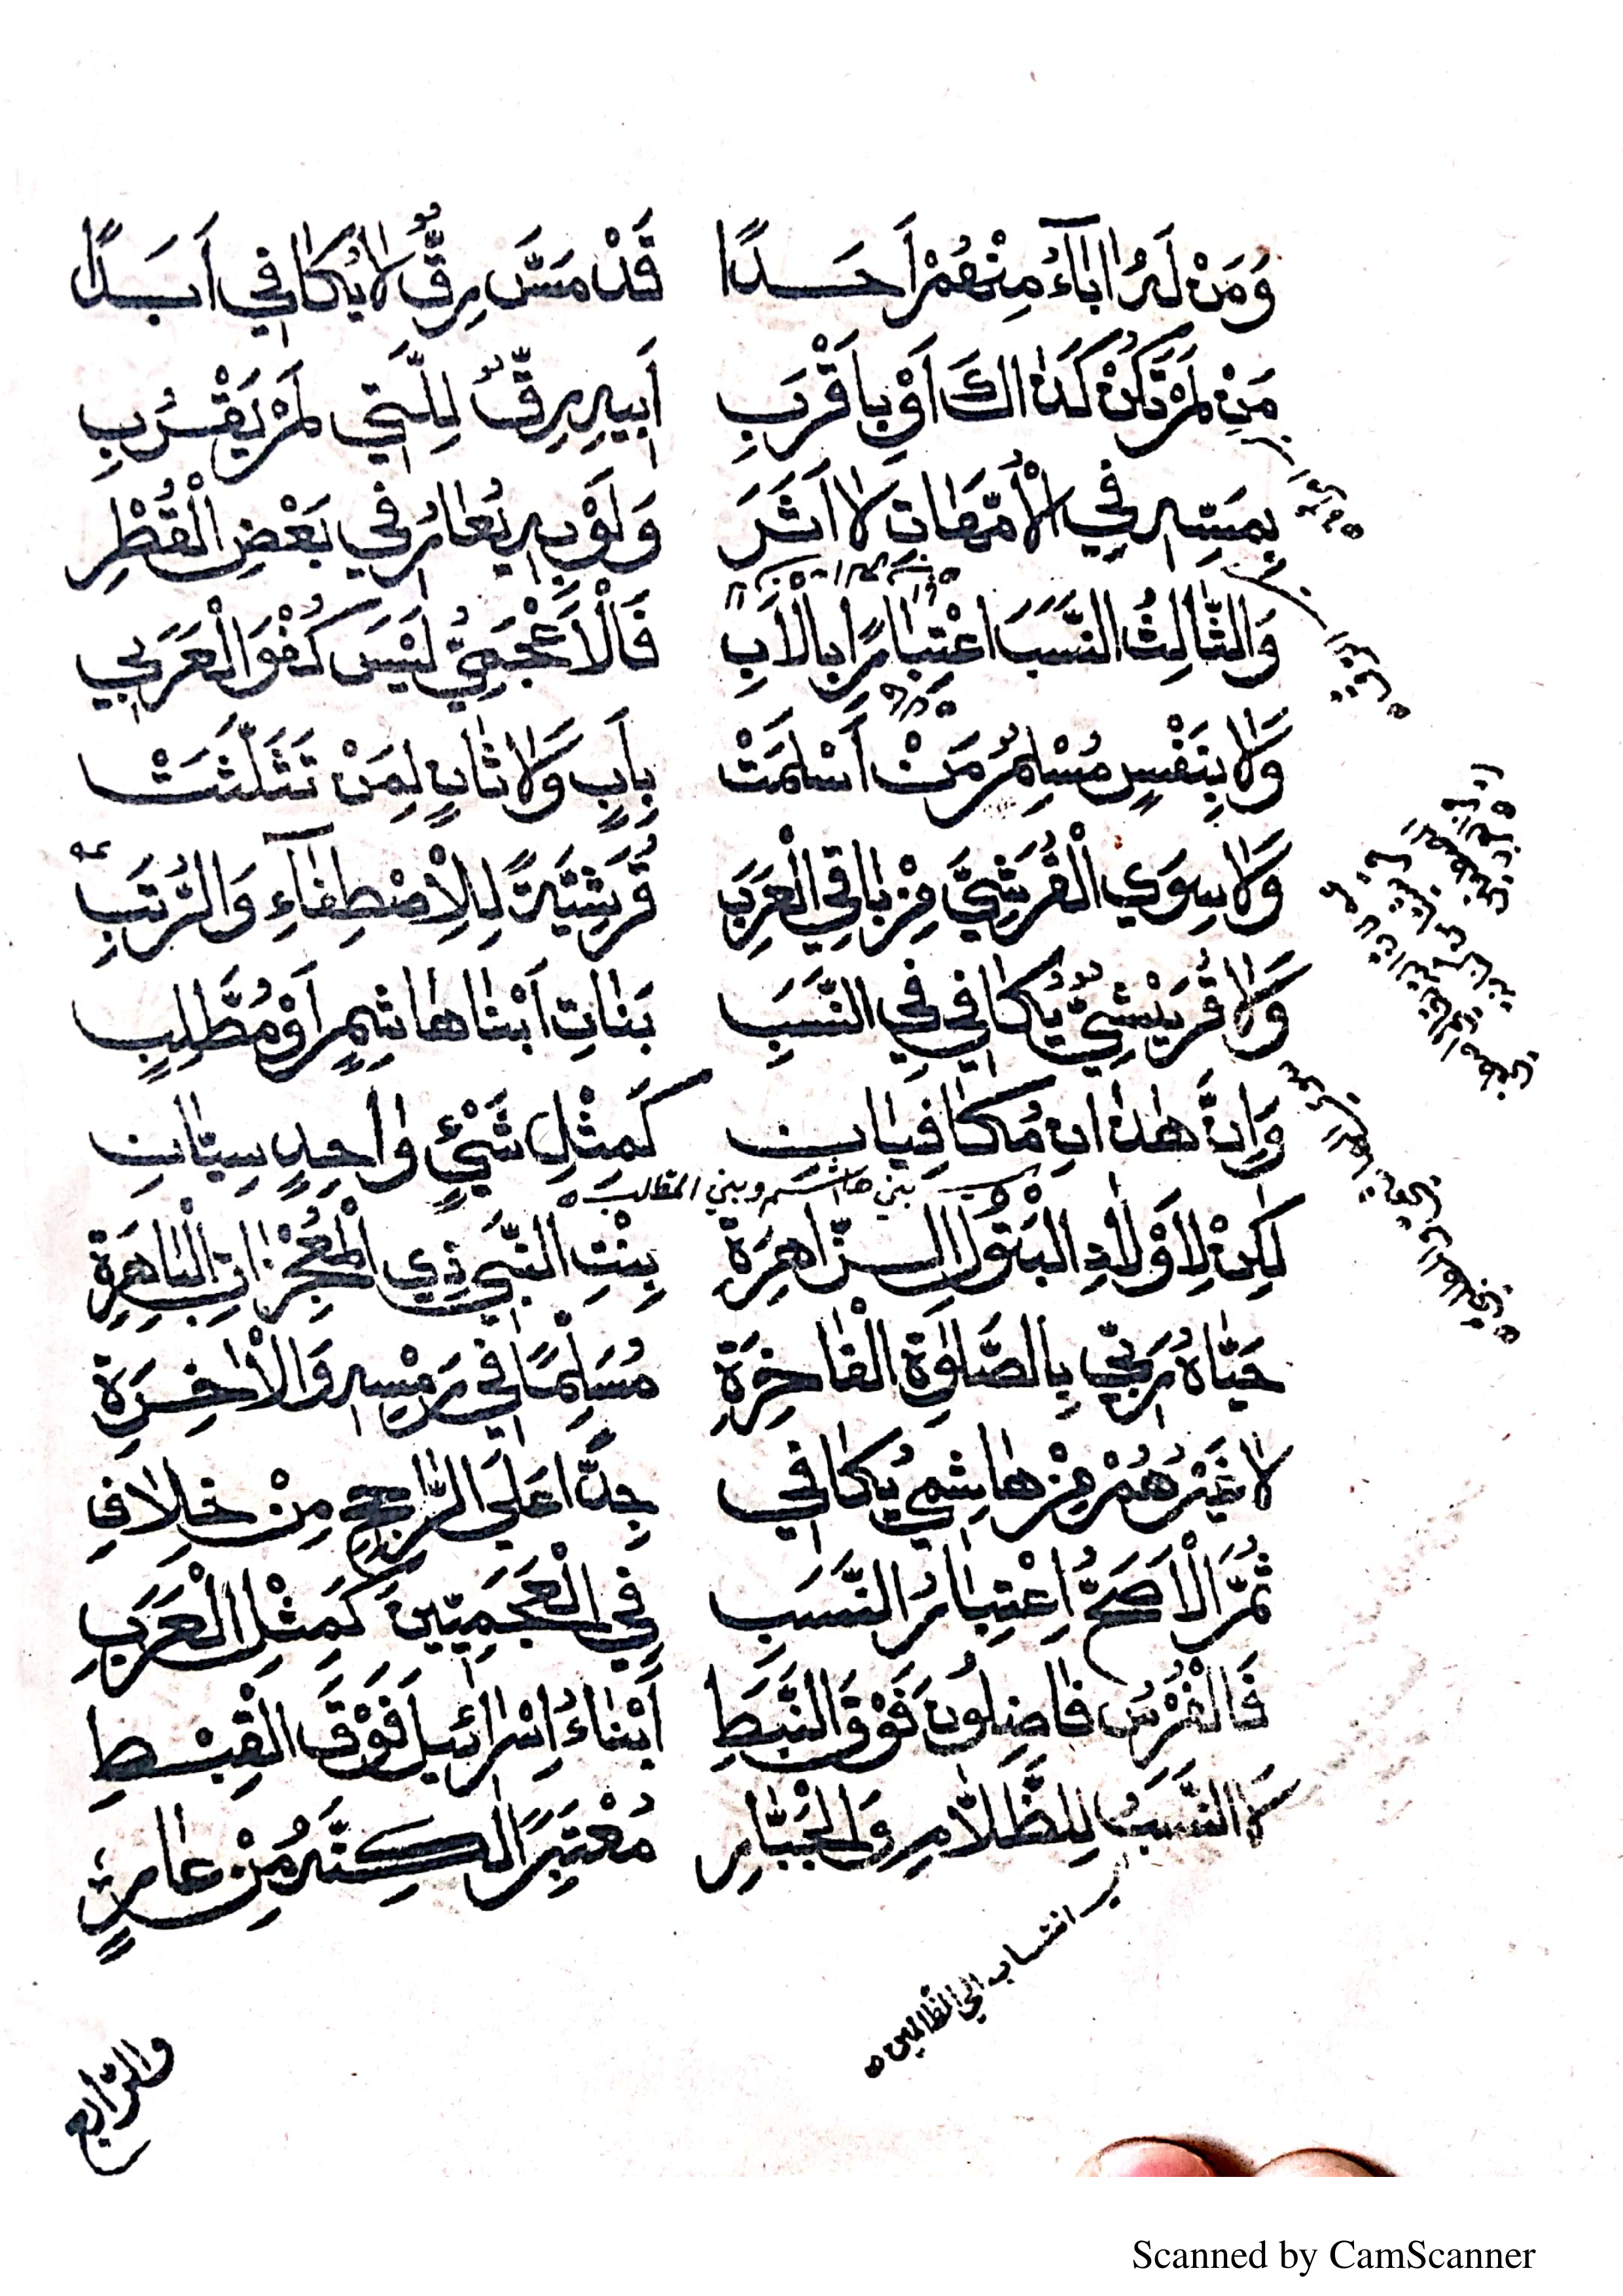 وَمَنْ لَهُ اٰبَآءُ مِنْهُمْ اَحَدًا قَدْ مَسَّ رِقٌّ لَا يُكَافِي اَبَدًا
مَنْ لَمْ تَكُنْ كَذَاكَ اَوْ بِاَقْرَبِ اَبِيهِ رِقٌّ لِلَّتِي لَمْ يَقْرُبِ
بِمَسِّهِ فِي الْأُمَّهَاتِ لَا اَثَرَ وَلَوْ بِهِ يُعَارُ فِي بَعْضِ الْقُطْرِ
وَالثَّالِثُ النَّسَبَ اعْتِبَارًا بِالْأَبِ فَالْأَعْجَمِيُّ لَيْسَ كُفْوَ الْعَرَبِي
وَلَا بِنَفْسٍ مُسْلِمٌ مَنْ اَسْلَمَتْ بِاَبٍ وَلَا ثَانٍ لِمَنْ تَثَلَّثَتْ
وَلَا سِوَي الْقُرَشِيِّ مِنْ بَاقِي الْعَرَبِ قُرَشِيَّةً لِلْاِصْطِفَآءِ وَالرُّتَبِ
وَلَا قُرَيْشِيٌّ يُكَافِي فِي النَّسَبِ بَنَاتِ اَبْنَا هَاشِمٍ اَوْ مُطَّلِبٍ
وَاِنَّ هٰذَانِ مُكَافِيَانِ كَمِثْلِ شَيْئٍ وَاحِدٍ سِيَّانِ
بني هاشم وبني المطلب
لٰكِنْ لِاَوْلَادِ الْبَتُوْلِ الزَّاهِرَةِ بِنْتِ النَّبِيِّ ذِي الْمُعْجِزَاتِ الْبَاهِرَةِ
حَيَّاهُ رَبِّي بِالصَّلٰوةِ الْفَاخِرَةِ مُسَلِّمًا فِي رَمْسِهِ وَالْاٰخِرَةِ
لَا غَيْرُهُمْ مِنْ هَاشِمِي يُكَافِي جِدًّا عَلَي الرَّاجِحِ مِنْ خِلَافِ
ثُمَّ الْاَصَحُّ اِعْتِبَارُ النَّسَبِ فِي الْعَجَمِيِّينَ كَمِثْلِ الْعَرَبِ
فَالْفُرْسُ فَاضِلُونَ فَوْقَ النَّبَطِ اَبْنَاءُ اِسْرَائِيلَ فَوْقَ الْقِبْطِ
لَا النَّسَبُ لِلظَّلَّامِ وَالْجَبَّارِ مُعْتَبَرًا لٰكِنَّهُ مِنْ عَارٍ
انتساب الي الظالمين
والرابع
Scanned by CamScanner